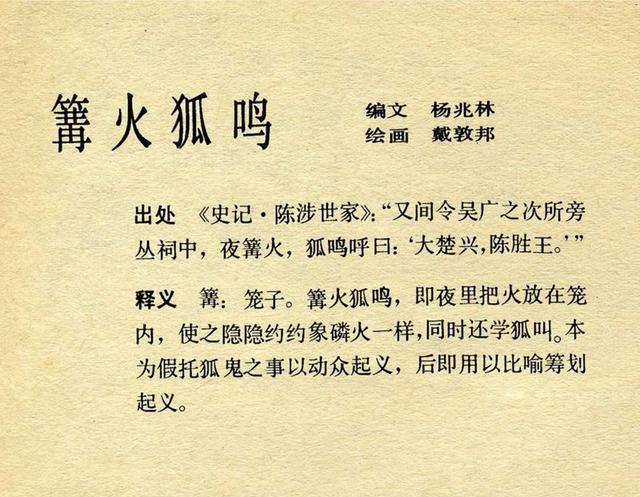 篝火狐鸣
编文 杨兆林
绘画 戴敦邦
出处 《史记·陈涉世家》：“又间令吴广之次所旁
丛祠中，夜篝火，狐鸣呼曰：‘大楚兴，陈胜王。’”
释义 篝：笼子。篝火狐鸣，即夜里把火放在笼
内，使之隐隐约约象磷火一样，同时还学狐叫。本
为假托狐鬼之事以动众起义，后即用以比喻筹划
起义。